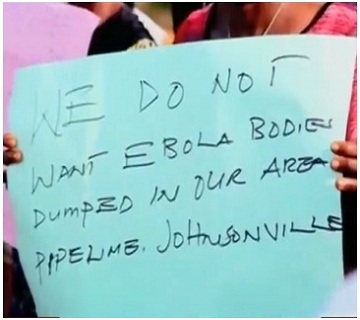 WE DO NOT
WANT EBOLA BODIES
DUMPED IN OUR AREA
PIPELINE. JOHNSONVILLE